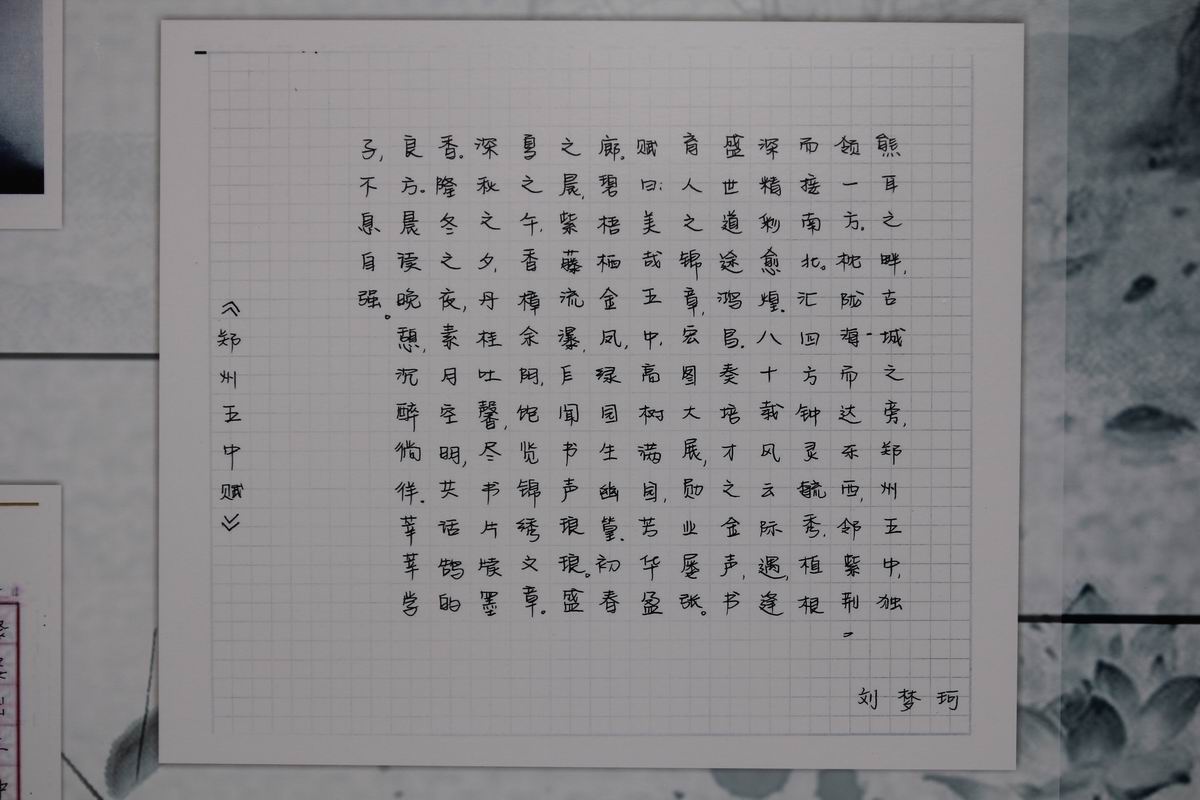 熊耳之畔,古城之旁,郑州五中,独
领一方。枕陇海而达东西,邻紫荆
而接南北。汇四方钟灵毓秀,植根
深精彩愈煌。八十载风云际遇,逢
盛世道途鸿昌。奏培才之金声,书
育人之锦章,宏图大展,勋业屡张。
赋曰:美哉五中,高树满园,芳华盈
廊。碧梧栖金凤,绿园生幽篁。初春
之晨,紫藤流瀑,闻书声琅琅。盛
夏之午,香樟余阴,饱览锦绣文章。
深秋之夕,丹桂吐馨,尽书片牍墨
香。隆冬之夜,素月空明,共话鹄的
良方。晨读晚憩,沉醉徜徉。莘莘学
子,不息自强。
《郑州五中赋》
刘梦珂